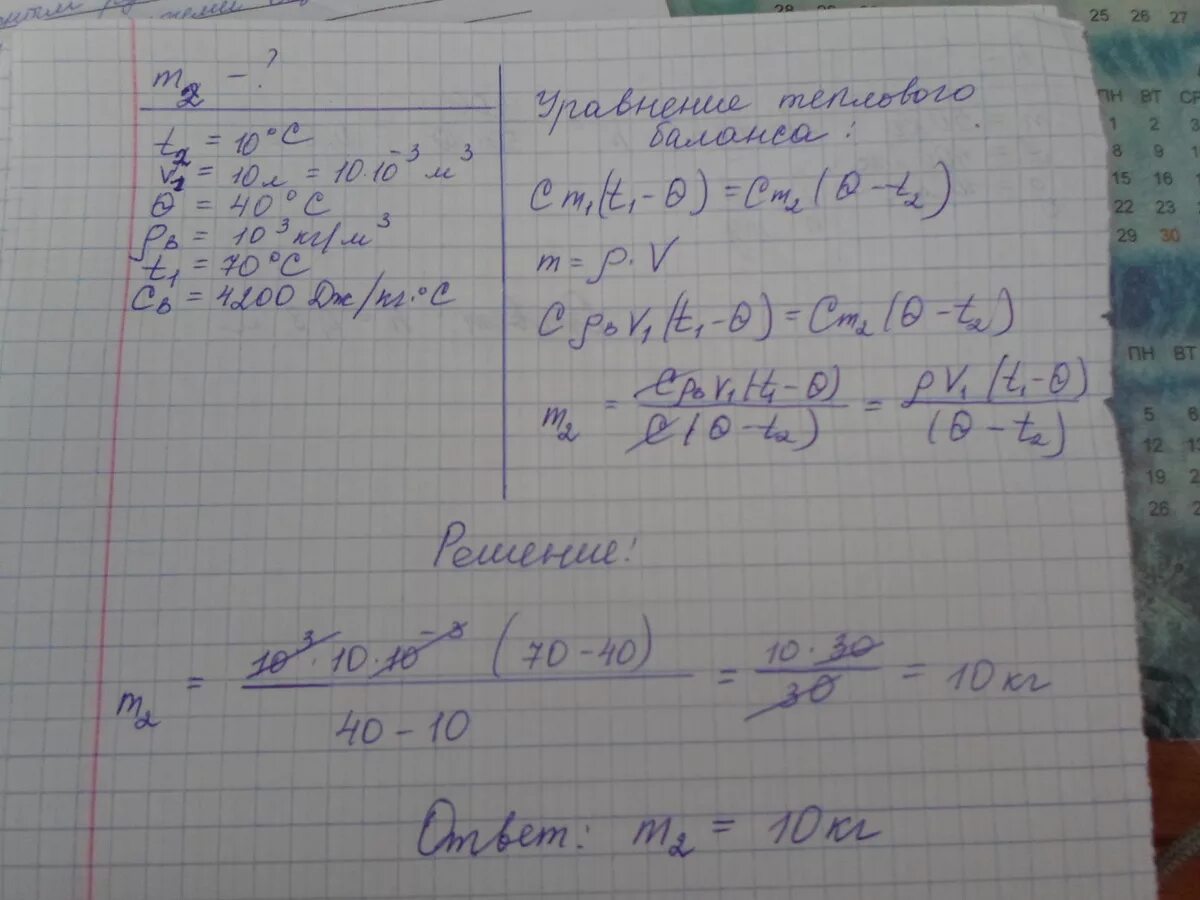 28
25 26 27
m₂ – ?
t₂ = 10°C
V₁ = 10л = 10·10⁻³ м³
Θ = 40°C
ρв = 10³ кг/м³
t₁ = 70°C
Cв = 4200 Дж/кг·°C
Уравнение теплового
баланса:
Cm₁(t₁ – Θ) = Cm₂(Θ – t₂)
m = ρ·V
CρвV₁(t₁ – Θ) = Cm₂(Θ – t₂)
m₂ = CρвV₁(t₁ – Θ) / C(Θ – t₂) = ρV₁(t₁ – Θ) / (Θ – t₂)
Решение:
m₂ = 10³·10·10⁻³ (70 – 40) / 40 – 10 = 10·30 / 30 = 10 кг
Ответ: m₂ = 10 кг
ПН ВТ СР
1 2 3
8 9
15 16
22 23
29 30
ПН ВТ
5 6
12
19
26